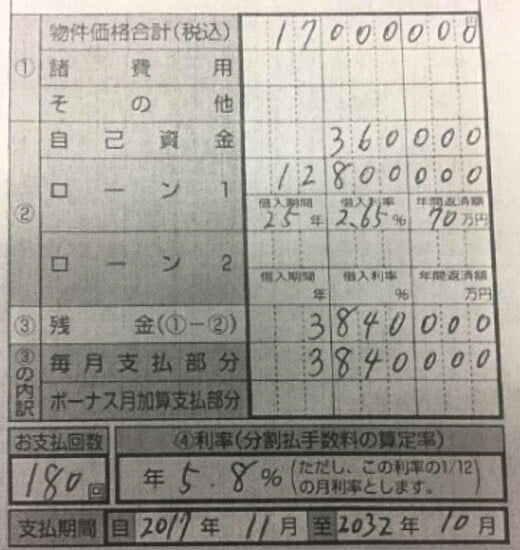 物件価格合計(税込) 17000000円
① 諸費用
その他
自己資金 360000
② ローン1 12800000
借入期間 借入利率 年間返済額
25年 2.65% 70万円
ローン2
借入期間 借入利率 年間返済額
年 % 万円
③ 残金(①-②) 3840000
③の内訳 毎月支払部分 3840000
ボーナス月加算支払部分
お支払回数 ④利率(分割払手数料の算定率)
180回 年5.8% (ただし、この利率の1/12
の月利率とします。)
支払期間 自2017年11月 至2032年10月